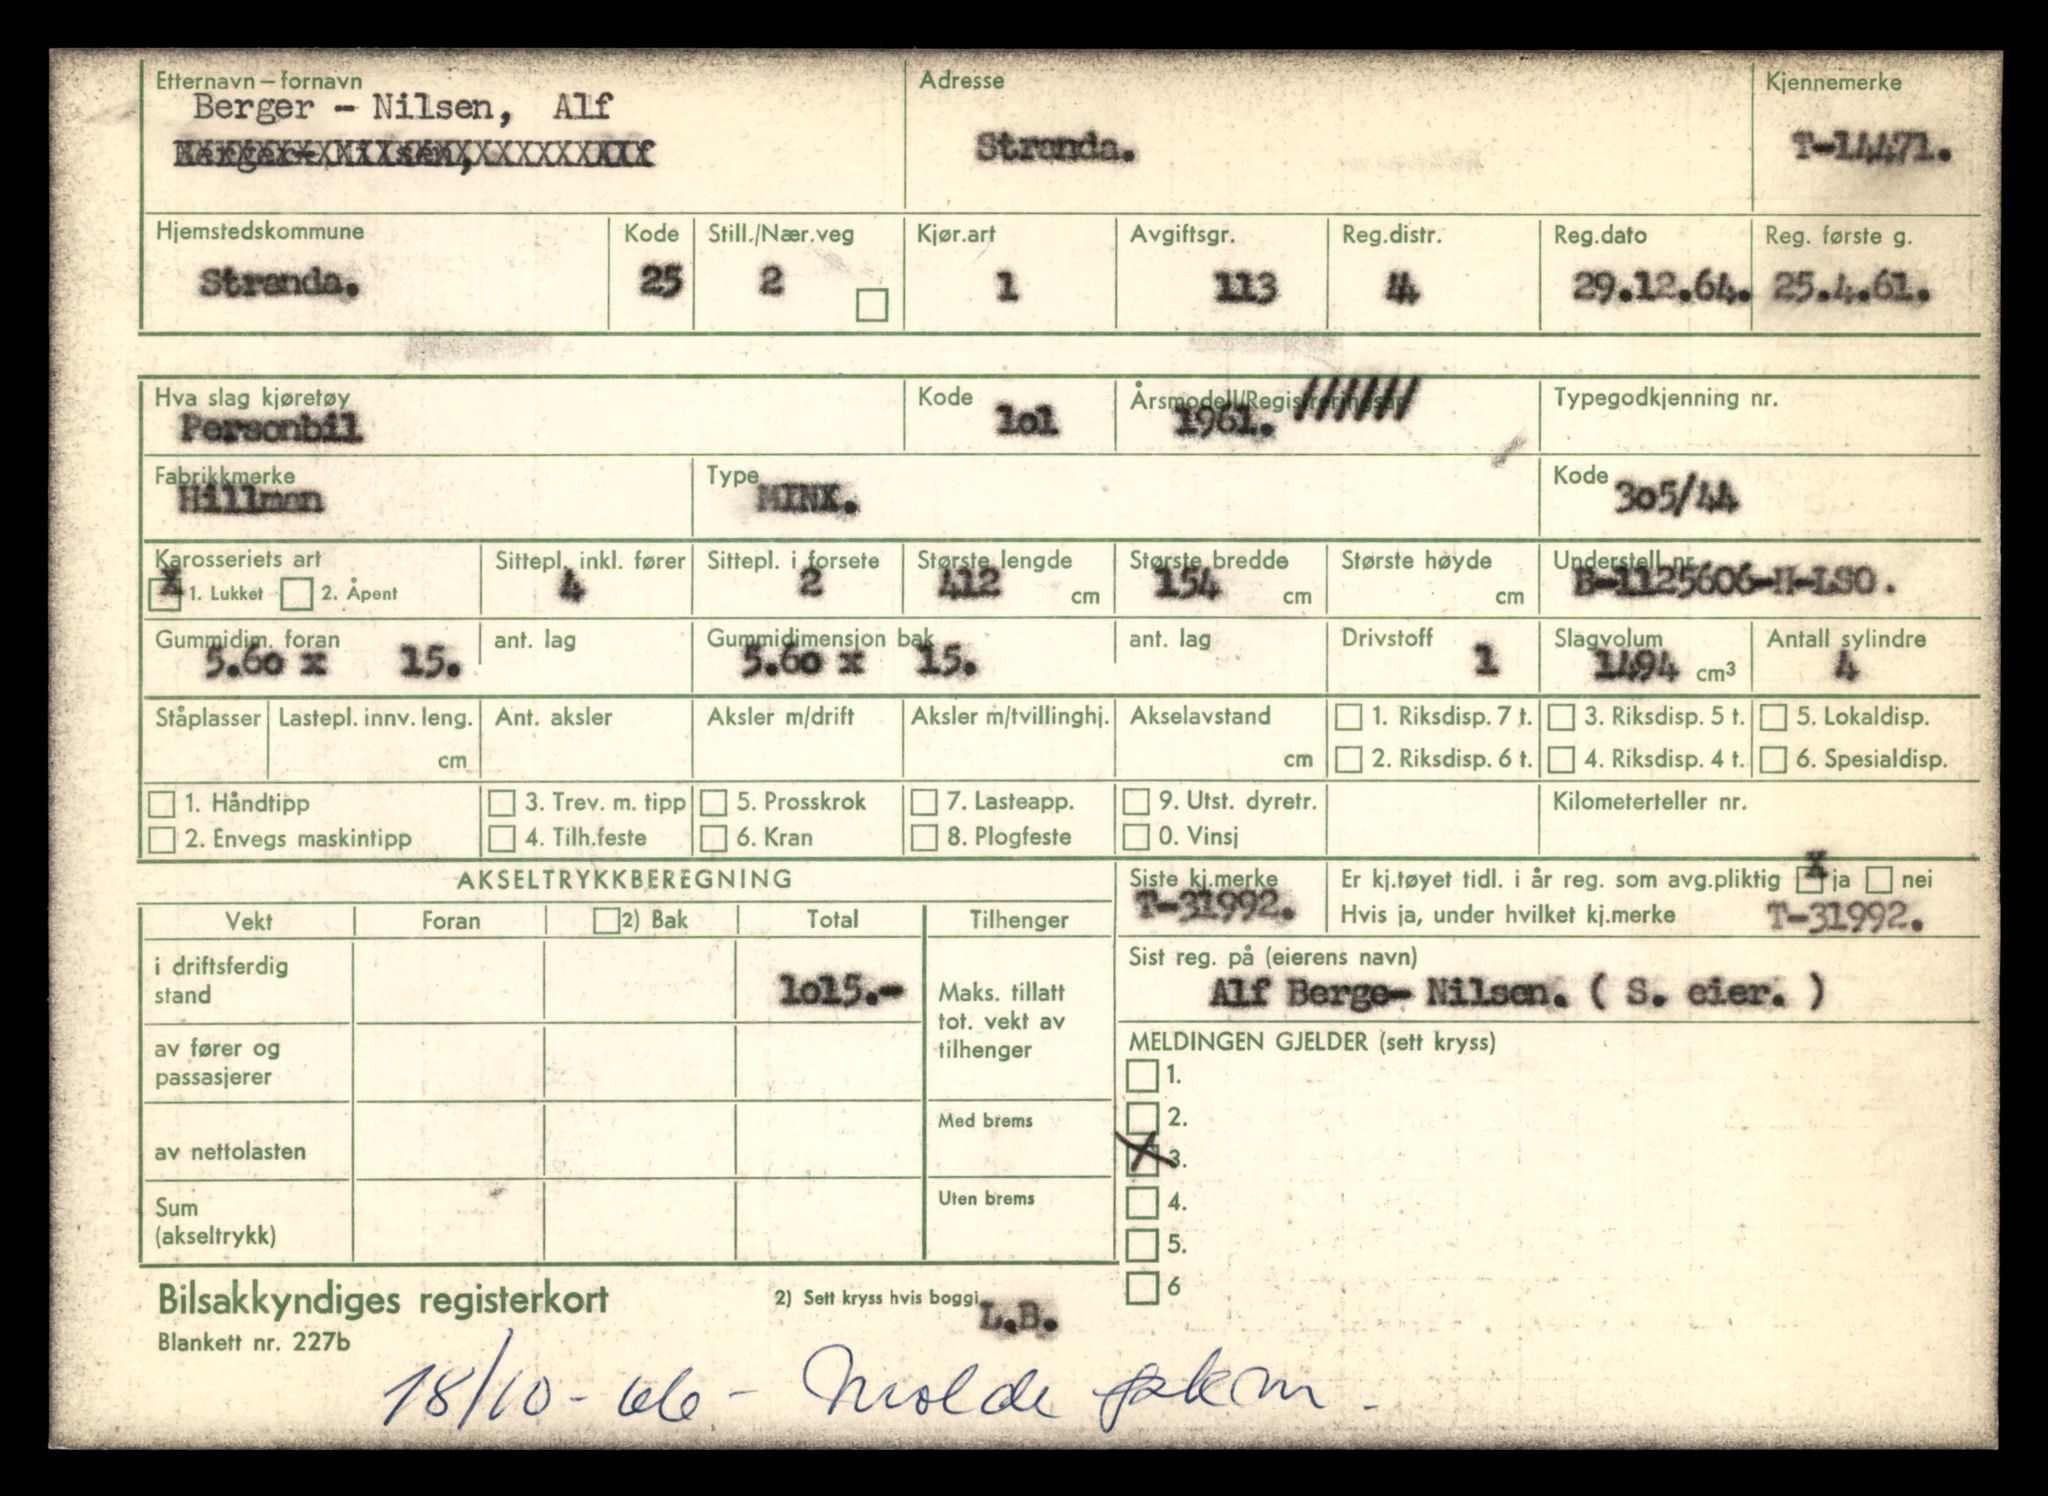 Etternavn – fornavn Adresse Kjennemerke
Berger - Nilsen, Alf
Stranda. T-14471.
Hjemstedskommune Kode Still./Nær.veg Kjør.art Avgiftsgr. Reg.distr. Reg.dato Reg. første g.
Stranda. 25 2 1 113 4 29.12.64. 25.4.61.
Hva slag kjøretøy Kode Årsmodell/Registreringsår Typegodkjenning nr.
Personbil 1o1 1961.
Fabrikkmerke Type Kode
Hillman MINX. 3o5/44
Karosseriets art Sittepl. inkl. fører Sittepl. i forsete Største lengde Største bredde Største høyde Understell nr.
X 1. Lukket 2. Åpent 4 2 412 cm 154 cm cm B-1125606-H-LSO.
Gummidim. foran ant. lag Gummidimensjon bak ant. lag Drivstoff Slagvolum Antall sylindre
5.6o x 15. 5.6o x 15. 1 1494 cm³ 4
Ståplasser Lastepl. innv. leng. Ant. aksler Aksler m/drift Aksler m/tvillinghj. Akselavstand 1. Riksdisp. 7 t. 3. Riksdisp. 5 t. 5. Lokaldisp.
cm cm 2. Riksdisp. 6 t. 4. Riksdisp. 4 t. 6. Spesialdisp.
1. Håndtipp 3. Trev. m. tipp 5. Prosskrok 7. Lasteapp. 9. Utst. dyretr. Kilometerteller nr.
2. Envegs maskintipp 4. Tilh.feste 6. Kran 8. Plogfeste 0. Vinsj
AKSELTRYKKBEREGNING Siste kj.merke Er kj.tøyet tidl. i år reg. som avg.pliktig X ja nei
T-31992. Hvis ja, under hvilket kj.merke T-31992.
Vekt Foran 2) Bak Total Tilhenger
Sist reg. på (eierens navn)
i driftsferdig
stand 1o15.- Maks. tillatt Alf Berge- Nilsen. ( S. eier. )
tot. vekt av
tilhenger
av fører og MELDINGEN GJELDER (sett kryss)
passasjerer 1.
Med brems 2.
av nettolasten X 3.
Sum Uten brems 4.
(akseltrykk) 5.
6
Bilsakkyndiges registerkort 2) Sett kryss hvis boggi
L.B.
Blankett nr. 227b
18/10-66 - Molde